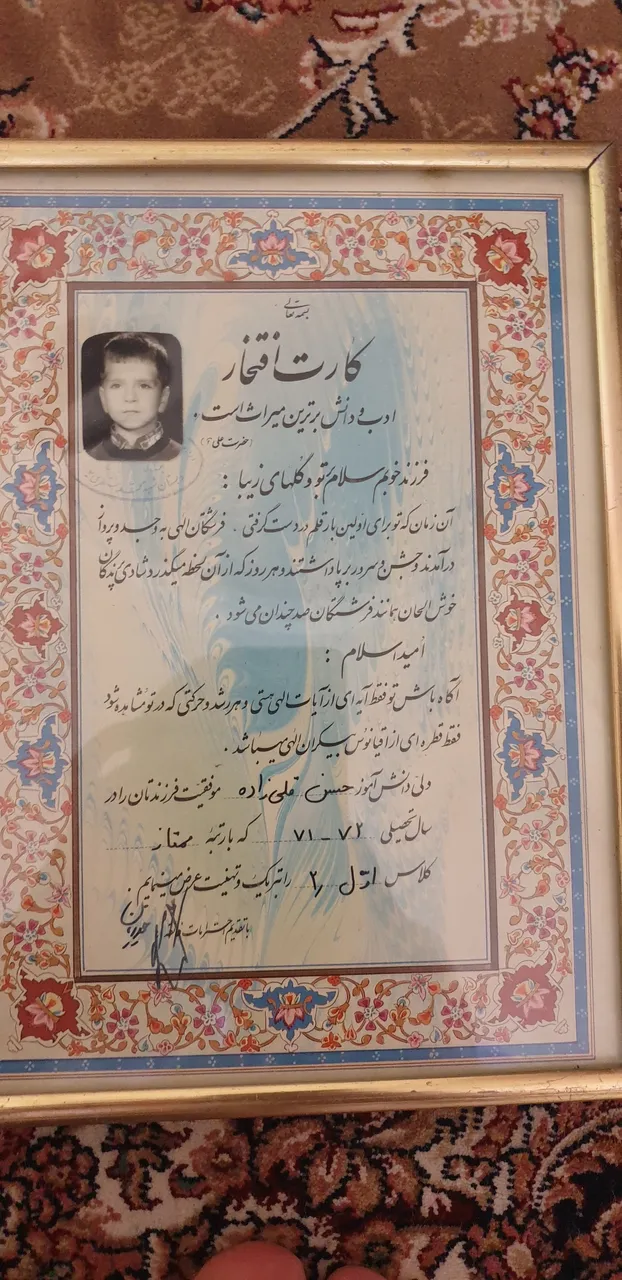 بسمه تعالی
کارت افتخار
ادب و دانش برترین میراث است.
(حضرت علی ع)
فرزند خوبم سلام بر تو و گلهای زیبا :
آن زمان که تو برای اولین بار قلم در دست گرفتی ، فرشتگان الهی به وجد و پرواز
درآمدند و جشن و سرور بر پا داشتند و هر روز که از آن لحظه میگذرد شادی پرندگان
خوش الحان همانند فرشتگان صد چندان می شود .
امید اسلام :
آگاه باش تو فقط آیه ای از آیات الهی هستی و هر رشد و حرکتی که در تو مشاهده شود
فقط قطره ای از اقیانوس بیکران الهی میباشد .
ولی دانش آموز حسن قلی زاده موفقیت فرزندتان را در
سال تحصیلی ۷۲ – ۷۱ که با رتبهٔ ممتاز
کلاس اول ۲ را تبریک و تهنیت عرض مینمایم
با تقدیم احترامات